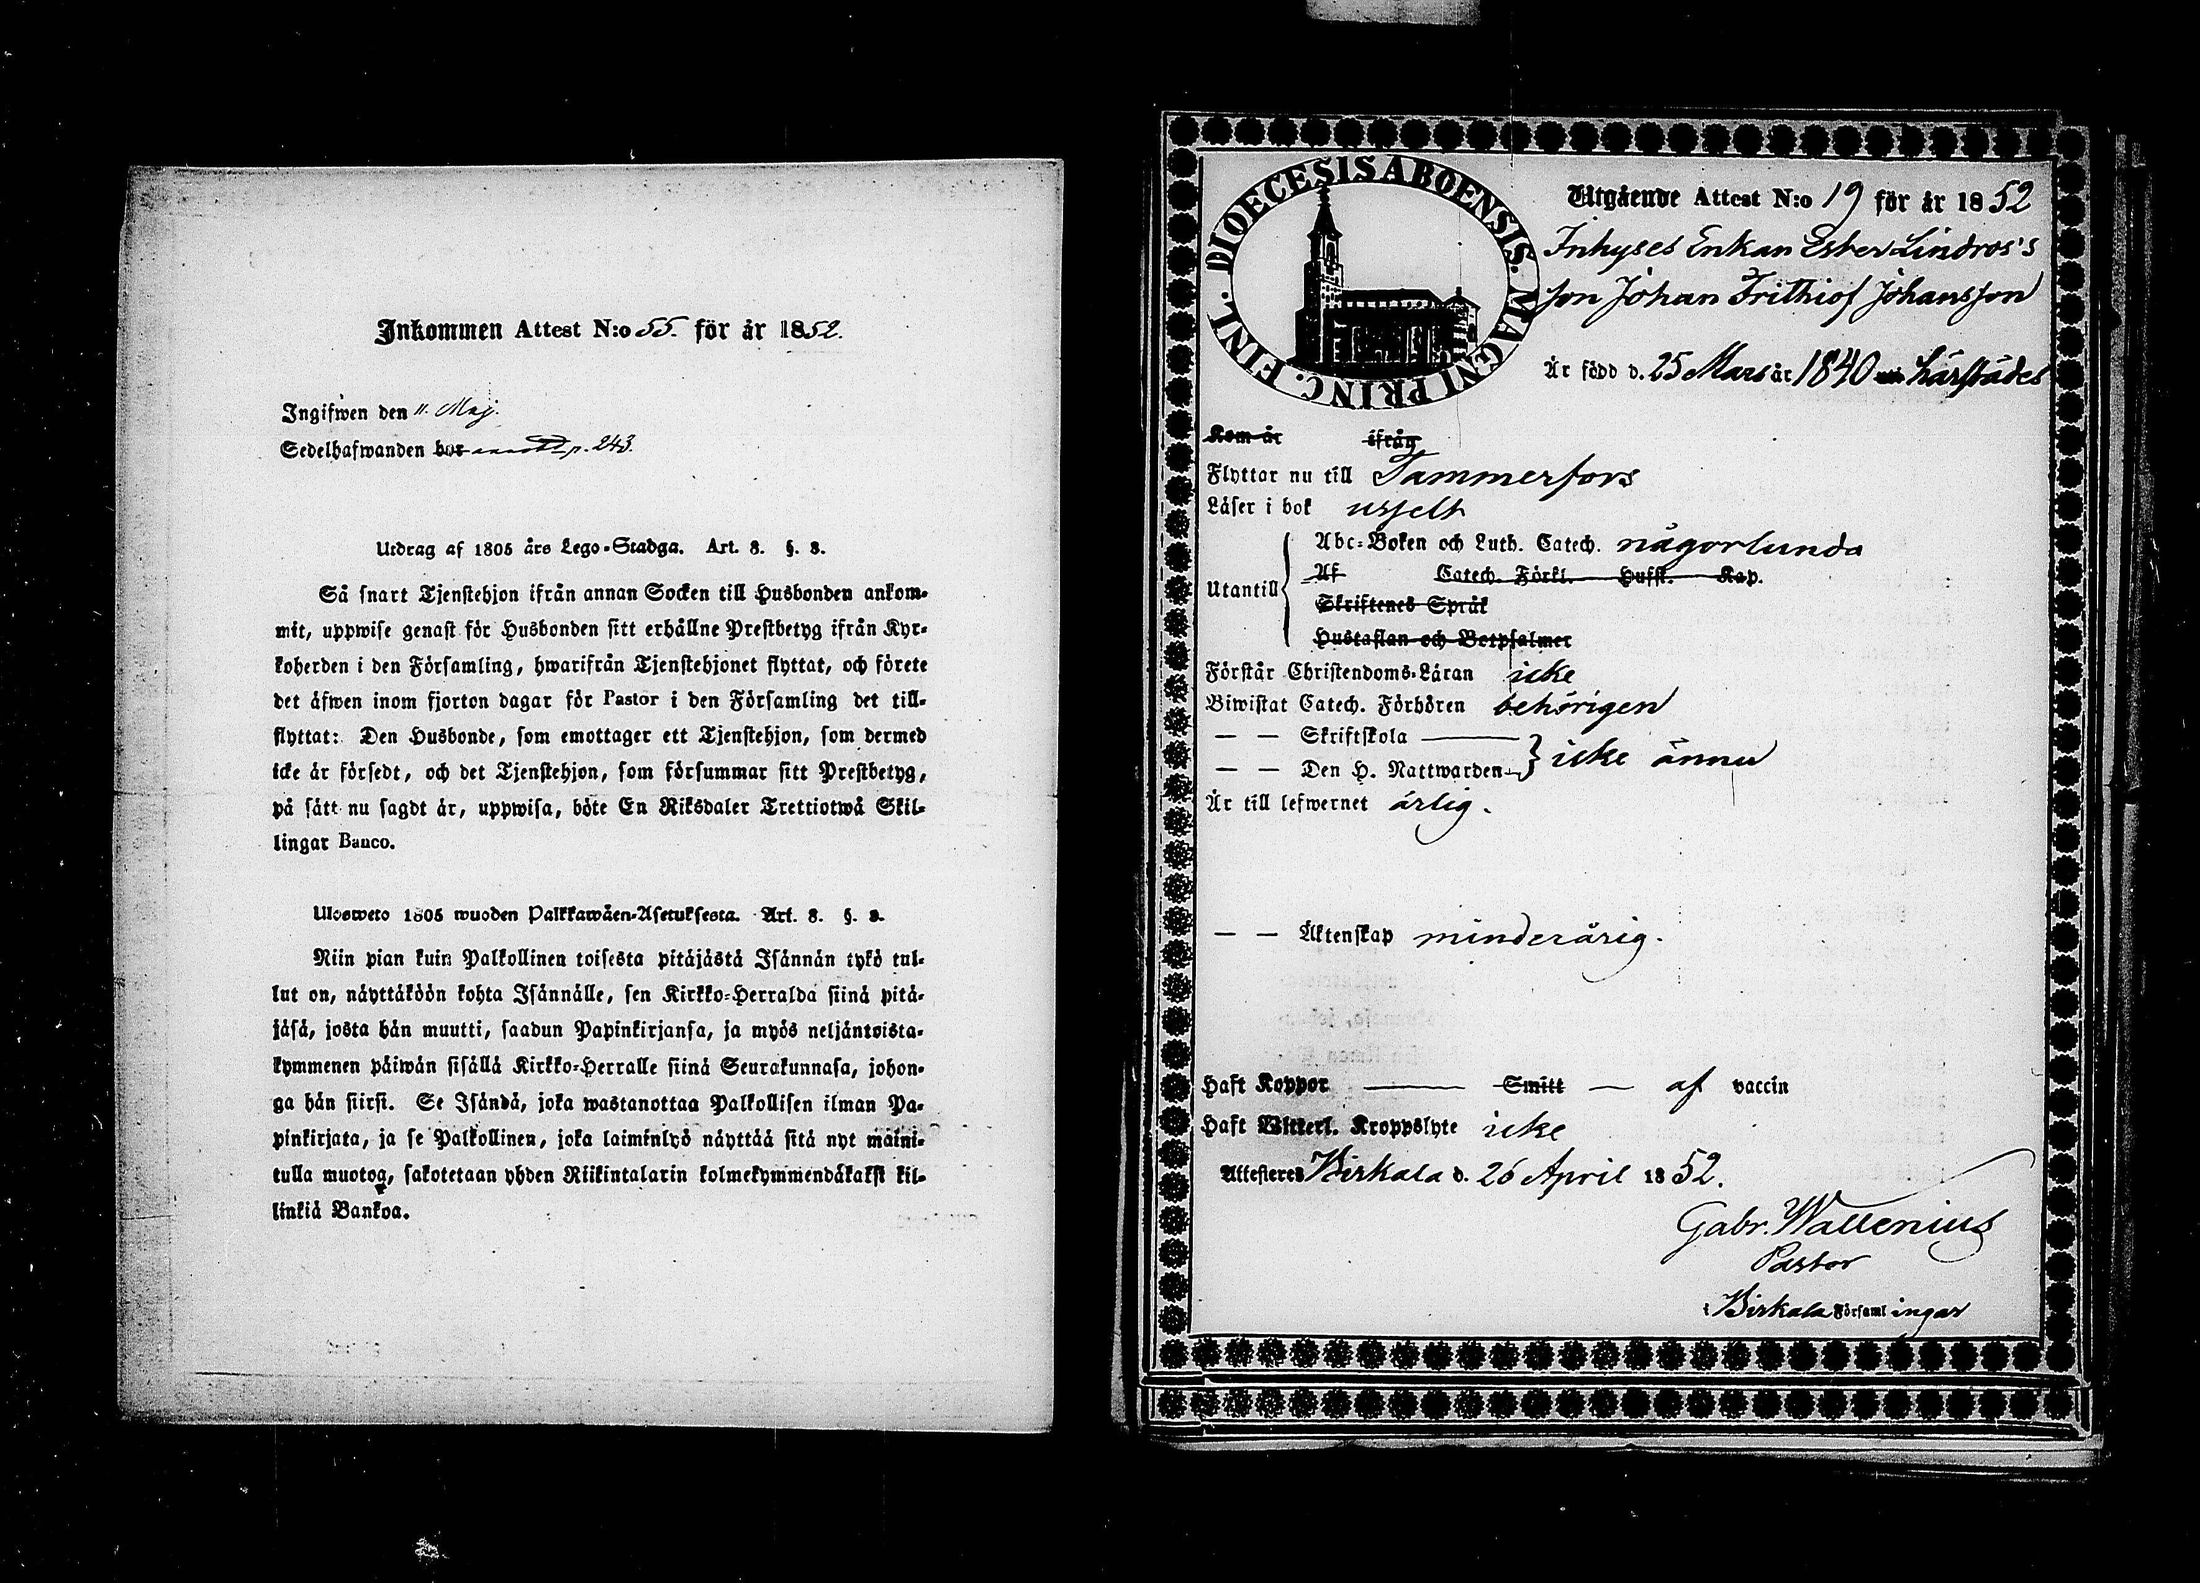 Inkommen Attest N:o 55. för år 1852.
Ingifwen den 11. Maj.
Sedelhafwanden bor p. 243.
Utdrag af 1805 års Lego-Stadga. Art. 8. §. 3.
Så snart Tjenstehjon ifrån annan Socken till Husbonden ankom-
mit, uppwise genast för Husbonden sitt erhållne Prestbetyg ifrån Kyr-
koherden i den Församling, hwarifrån Tjenstehjonet flyttat, och förete
det äfwen inom fjorton dagar för Pastor i den Församling det till-
flyttat: Den Husbonde, som emottager ett Tjenstehjon, som dermed
icke är försedt, och det Tjenstehjon, som försummar sitt Prestbetyg,
på sätt nu sagdt är, uppwisa, böte En Riksdaler Trettiotwå Skil-
lingar Banco.
Ulosweto 1805 wuoden Palkkawäen-Asetuksesta. Art. 8. §. 3.
Niin pian kuin Palkollinen toisesta pitäjästä Isännän tykö tul-
lut on, näyttäköön kohta Isännälle, sen Kirkko-Herralda siinä pitä-
jäsä, josta hän muutti, saadun Papinkirjansa, ja myös neljäntoista-
kymmenen päiwän sisällä Kirkko-Herralle siinä Seurakunnasa, johon-
ga hän siirsi. Se Isändä, joka wastanottaa Palkollisen ilman Pa-
pinkirjata, ja se Palkollinen, joka laiminlyö näyttää sitä nyt maini-
tulla muotoa, sakotetaan yhden Riikintalarin kolmekymmendäkaksi kil-
linkiä Bankoa.
DIOECESIS ABOENSIS. MAGNI PRINC. FINL.
Utgående Attest N:o 19 för år 1852
Inhyses Enkan Ester Lindros's
son Johan Frithiof Johansson
Är född d. 25 Mars år 1840 härstädes
Kom år ifrån
Flyttar nu till Tammerfors
Läser i bok usselt
Utantill
Abc-Boken och Luth. Catech. någorlunda
Af Catech. Förkl. Hufst. Kap.
Skriftenes Språk
Hustaflan och Botpsalmer
Förstår Christendoms-Läran icke
Biwistat Catech. Förhören behörigen
— — Skriftskola
— — Den H. Nattwarden } icke ännu
Är till lefwernet ärlig.
— — Äktenskap minderårig.
Haft Koppor — Smitt — af vaccin
Haft Witterl. Kroppslyte icke
Attesteres Birkala d. 26 April 1852.
Gabr. Wallenius
Pastor
i Birkala Församlingar